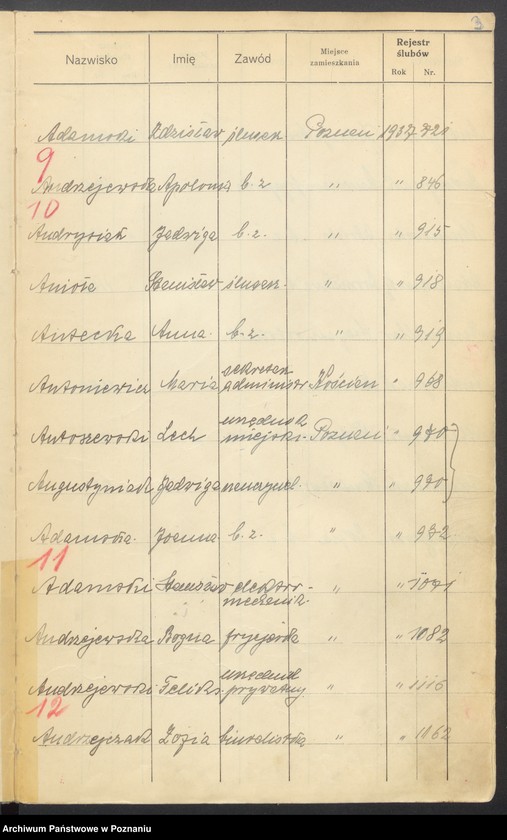 3
Nazwisko Imię Zawód Miejsce zamieszkania Rejestr ślubów Rok Nr.
Adamski Zdzisław ślusarz Poznań 1937
9
Andrzejewska Apolonia b. z. " " 846
10
Andrysiak Jadwiga b. z. " " 915
Anioła Stanisław ślusarz. " " 918
Antecka Anna. b. z. " " 919
sekretarz
Antoniewicz Maria administr. Kościan " 968
urzędnik
Antoszewski Lech miejski. Poznań " 970
Augustyniak Jadwiga nauczyciel. " " 990
Adamska. Joanna b. z. " " 992
11
Adamski elektro-
mechanik " " 1071
Andrzejewska Bogna fryzjerka " " 1082
urzędnik
Andrzejewski Feliks. prywatny. " " 1116
12
Andrzejczak Zofia biuralistka " " 1162
Archiwum Państwowe w Poznaniu